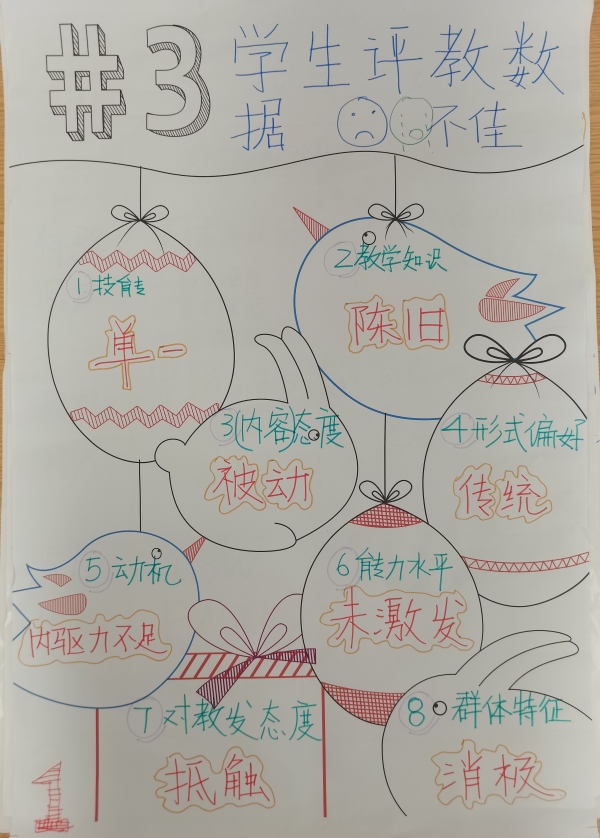 #3 学生评教数
据 不佳
1 技能
单一
2 教学知识
陈旧
3(内容)态度
被动
4 形式偏好
传统
5 动机
内驱力不足
6 能力水平
未激发
7 对教发态度
抵触
8 群体特征
消极
1